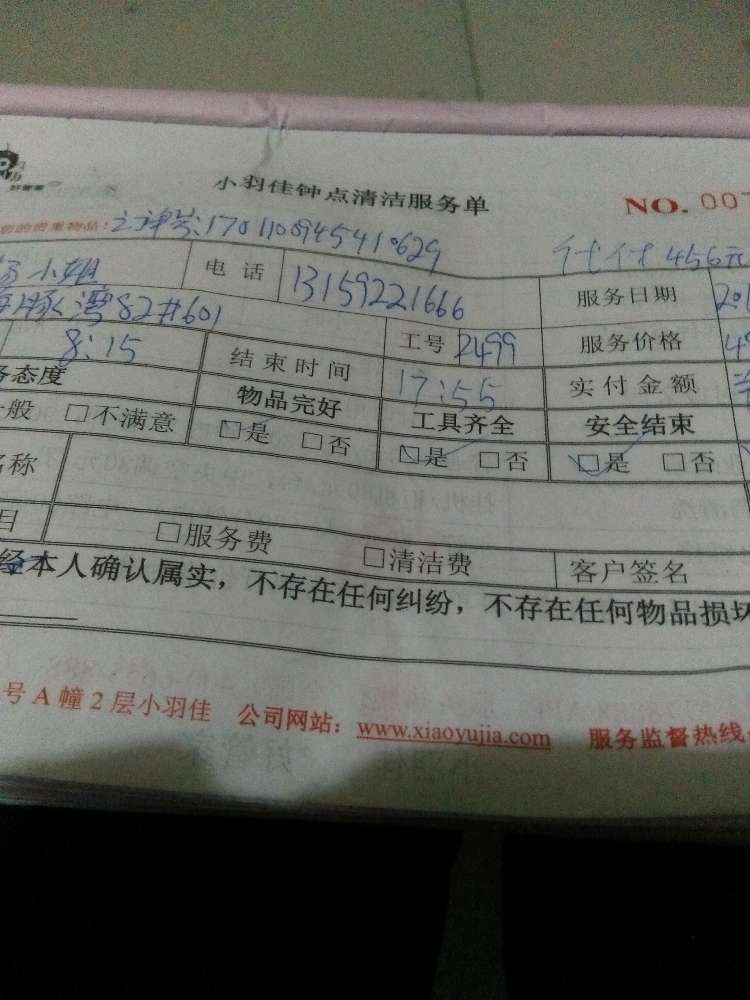 好管家
小羽佳钟点清洁服务单
NO. 007
您的贵重物品! 订单号:1701100945410629 代付456元
小姐 电话 13159221666 服务日期 201
湾82#601 工号 2499 服务价格
8:15 结束时间 17:55 实付金额
务态度 物品完好 工具齐全 安全结束
一般 □不满意 □是 □否 □是 □否 □是 □否
名称
目 □服务费 □清洁费 客户签名
经本人确认属实，不存在任何纠纷，不存在任何物品损坏
号A幢2层小羽佳 公司网站：www.xiaoyujia.com 服务监督热线